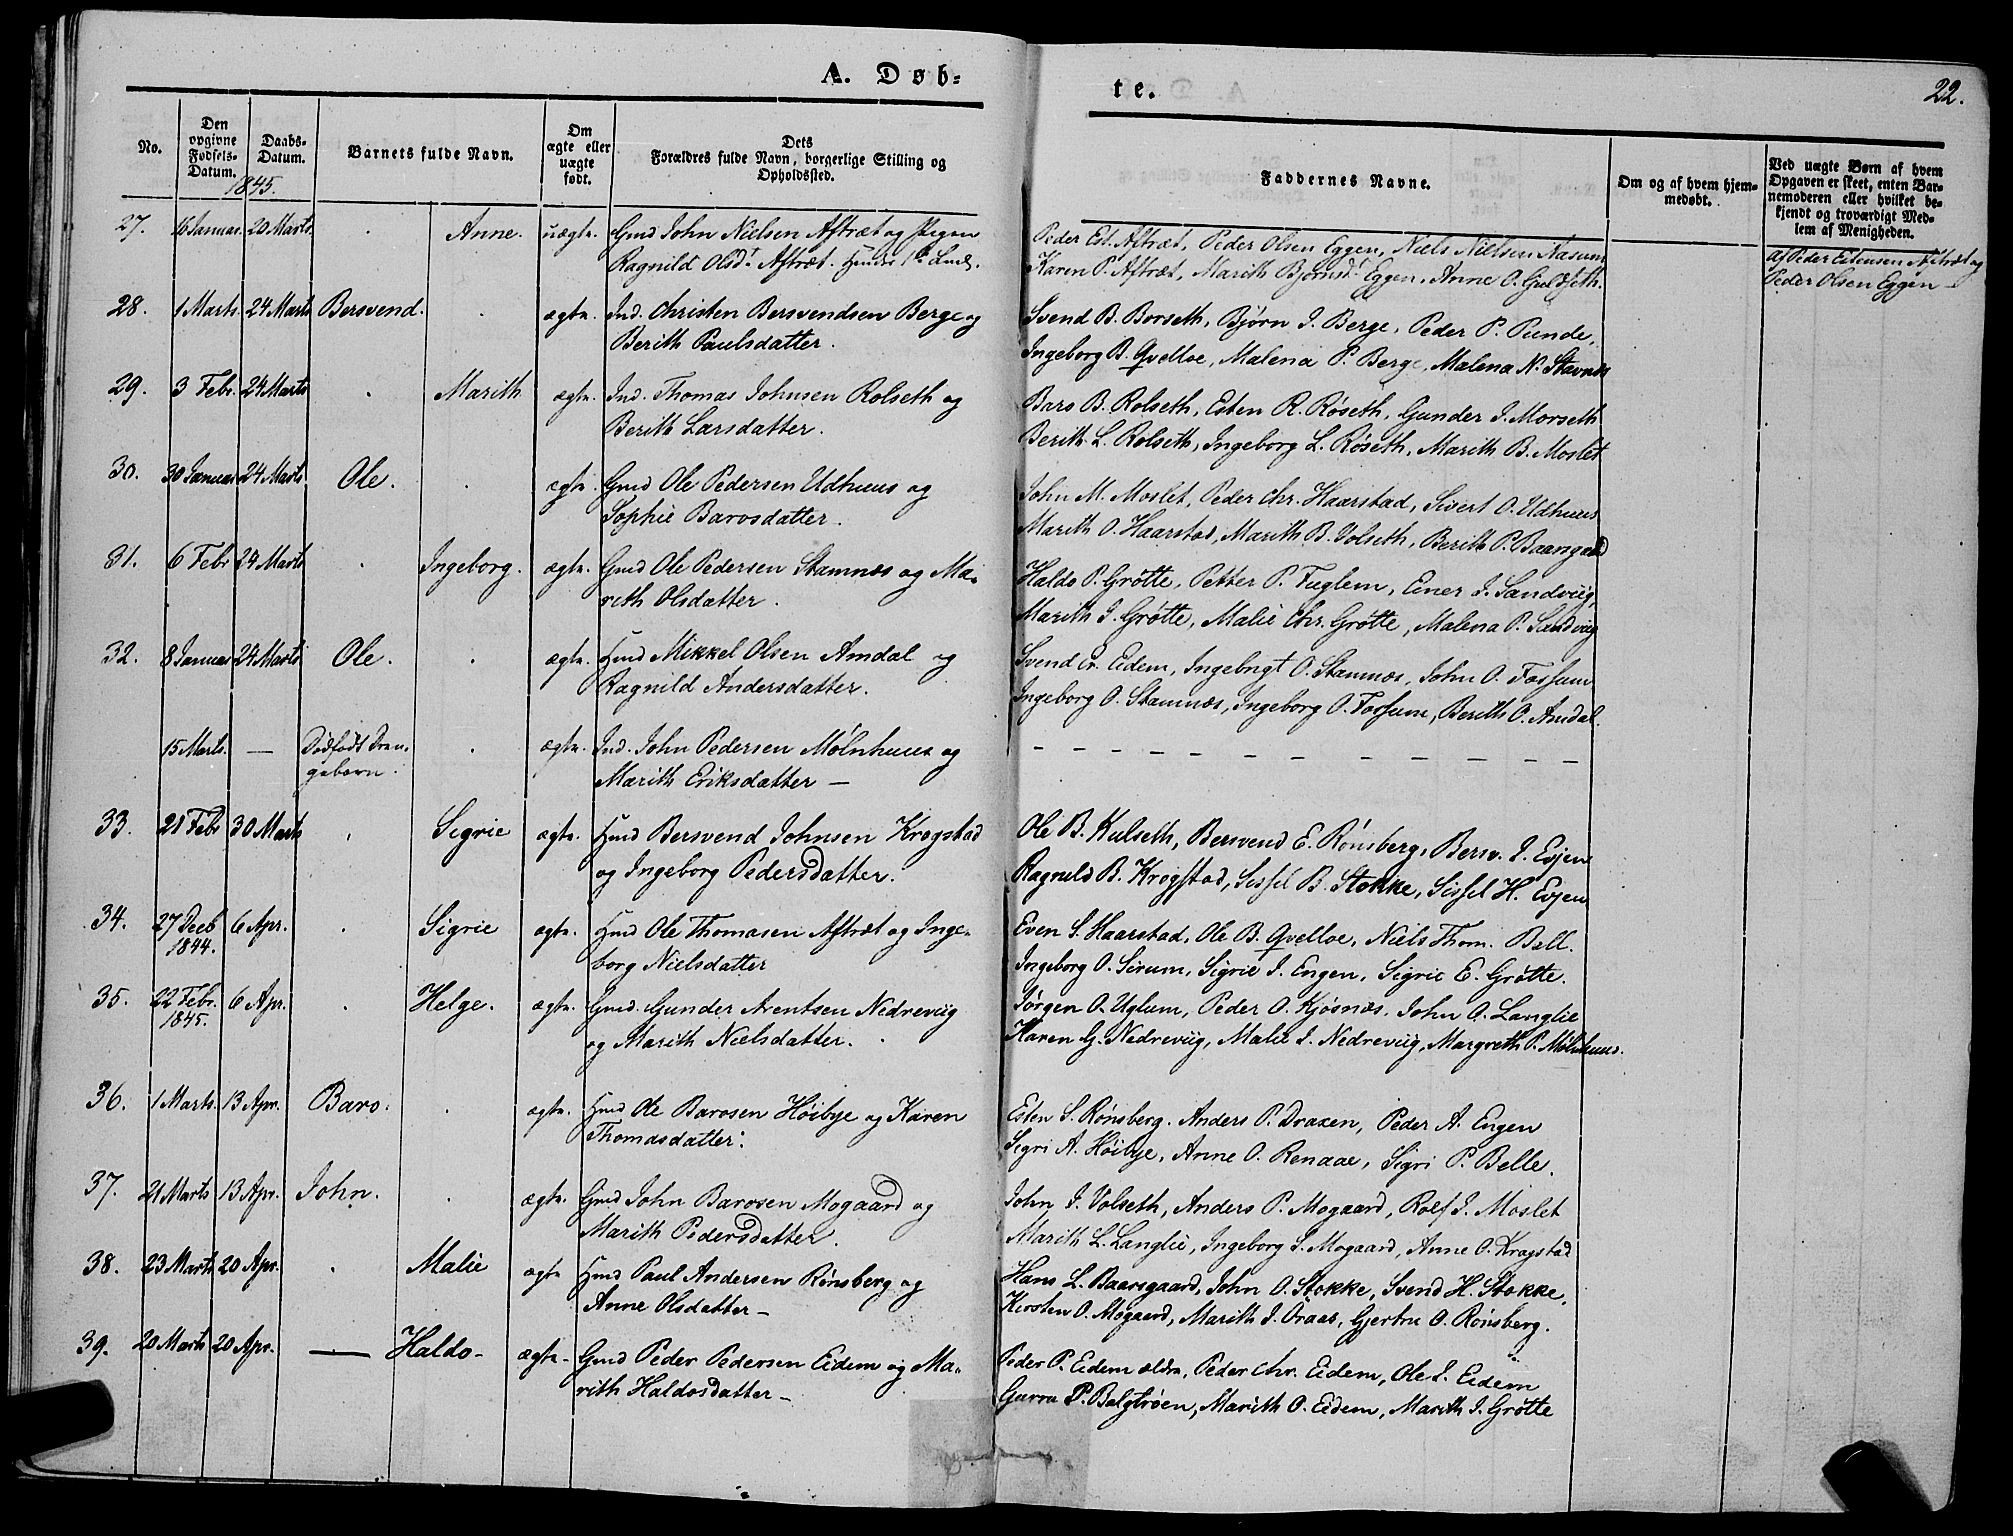 A. Døb-
te.
22.
No.
Den opgivne Fødsels-Datum.
Daabs-Datum.
1845.
Barnets fulde Navn.
Om ægte eller uægte født.
Dets Forældres fulde Navn, borgerlige Stilling og Opholdssted.
Faddernes Navne.
Om og af hvem hjemmedøbt.
Ved uægte Børn af hvem Opgaven er skeet, enten Barnemoderen eller hvilket bekjendt og troværdigt Medlem af Menigheden.
27. 16 Januar. 20 Marts. Anne. uægte. Gmd John Nielsen Aftræt og Pigen
Ragnild Olsd. Aftræt.
Peder Est. Aftræt, Peder Olsen Eggen, Niels Nielsen Aasum
Karen P. Aftræt, Marith Bjørnsd. Eggen, Anne O. Guldseth.
af Peder Estensen Aftræt og
Peder Olsen Eggen
28. 1 Marts. 24 Marts Bersvend. ægte. Ind. Christen Bersvendsen Berge og
Berith Paulsdatter.
Svend B. Borseth, Bjørn J. Berge, Peder P. Punde,
Ingeborg B. Qvelloe, Malena P. Berge, Malena N. Stavnes
29. 3 Febr. 24 Marts Marith ægte. Ind. Thomas Johnsen Rolseth og
Berith Larsdatter.
Baro B. Rolseth, Esten R. Røseth, Gunder J. Morseth
Berith L. Rolseth, Ingeborg L. Røseth, Marith B. Moslet
30. 30 Januar 24 Marts Ole. ægte. Gmd Ole Pedersen Udhuus og
Sophie Barosdatter.
John M. Moslet, Peder Chr. Haarstad, Sivert O. Udhuus
Marith O. Haarstad, Marith B. Volseth, Berith P. Baargaard
31. 6 Febr 24 Marts Ingeborg. ægte. Gmd Ole Pedersen Stamnes og Ma-
rith Olsdatter.
Haldo P. Grøtte, Petter P. Fuglem, Einer J. Sandviig,
Marith J. Grøtte, Malie Chr. Grøtte, Malena P. Sandviig
32. 8 Januar 24 Marts Ole. ægte. Hmd Mikkel Olsen Amdal og
Ragnild Andersdatter.
Svend Eidem, Ingebrigt O. Stamnes, John O. Fossum
Ingeborg O. Stamnes, Ingeborg O. Fossum, Berith O. Amdal.
15 Marts. — Dødfødt Dren-
gebarn. ægte. Ind. John Pedersen Mølnhuus og
Marith Eriksdatter —
33. 21 Febr 30 Marts Sigrie ægte. Hmd Bersvend Johnsen Krogstad
og Ingeborg Pedersdatter.
Ole B. Kulseth, Bersvend E. Rønsberg, Bersv. J. Evjen
Ragnild B. Krogstad, Sissel B. Stokke, Sissel H. Evjen
34. 27 Decb 1844. 6 Apr. Sigrie ægte. Hmd Ole Thomasen Aftræt og Inge-
borg Nielsdatter
Even S. Haarstad, Ole B. Qvelloe, Niels Thom. Bell.
Ingeborg O. Sirum, Sigrie J. Engen, Sigrie E. Grøtte.
35. 22 Febr. 1845. 6 Apr. Helge. ægte. Gmd. Gunder Arentsen Nedreviig
og Marith Nielsdatter.
Jørgen O. Uglum, Peder O. Kjøsnæs, John O. Langlie
Karen G. Nedreviig, Malie J. Nedreviig, Margreth P. Mølnhuus.
36. 1 Marts. 13 Apr. Baro. ægte. Hmd Ole Barosen Høibye og Karen
Thomasdatter.
Esten S. Rønsberg. Anders P. Draxen, Peder A. Engen
Sigri A. Høibye, Anne O. Renaae, Sigri P. Belle.
37. 21 Marts 13 Apr. John. ægte. Gmd John Barosen Mogaard og
Marith Pedersdatter.
John J. Volseth, Anders P. Mogaard, Rolf J. Moslet
Marith L. Langlie, Ingeborg J. Mogaard, Anne O. Kragstad
38. 23 Marts 20 Apr. Malie ægte Hmd Paul Andersen Rønsberg og
Anne Olsdatter —
Hans L. Baarsgaard, John O. Stokke, Svend H. Stokke,
Kirsten O. Mogaard, Marith J. Oraas, Gjertru O. Rønsberg.
39. 20 Marts 20 Apr. — Haldo — ægte. Gmd Peder Pedersen Eidem og Ma-
rith Haldosdatter —
Peder P. Eidem ældre, Peder Chr. Eidem, Ole J. Eidem
Gurru P. Balstrøen, Marith O. Eidem, Marith J. Grøtte